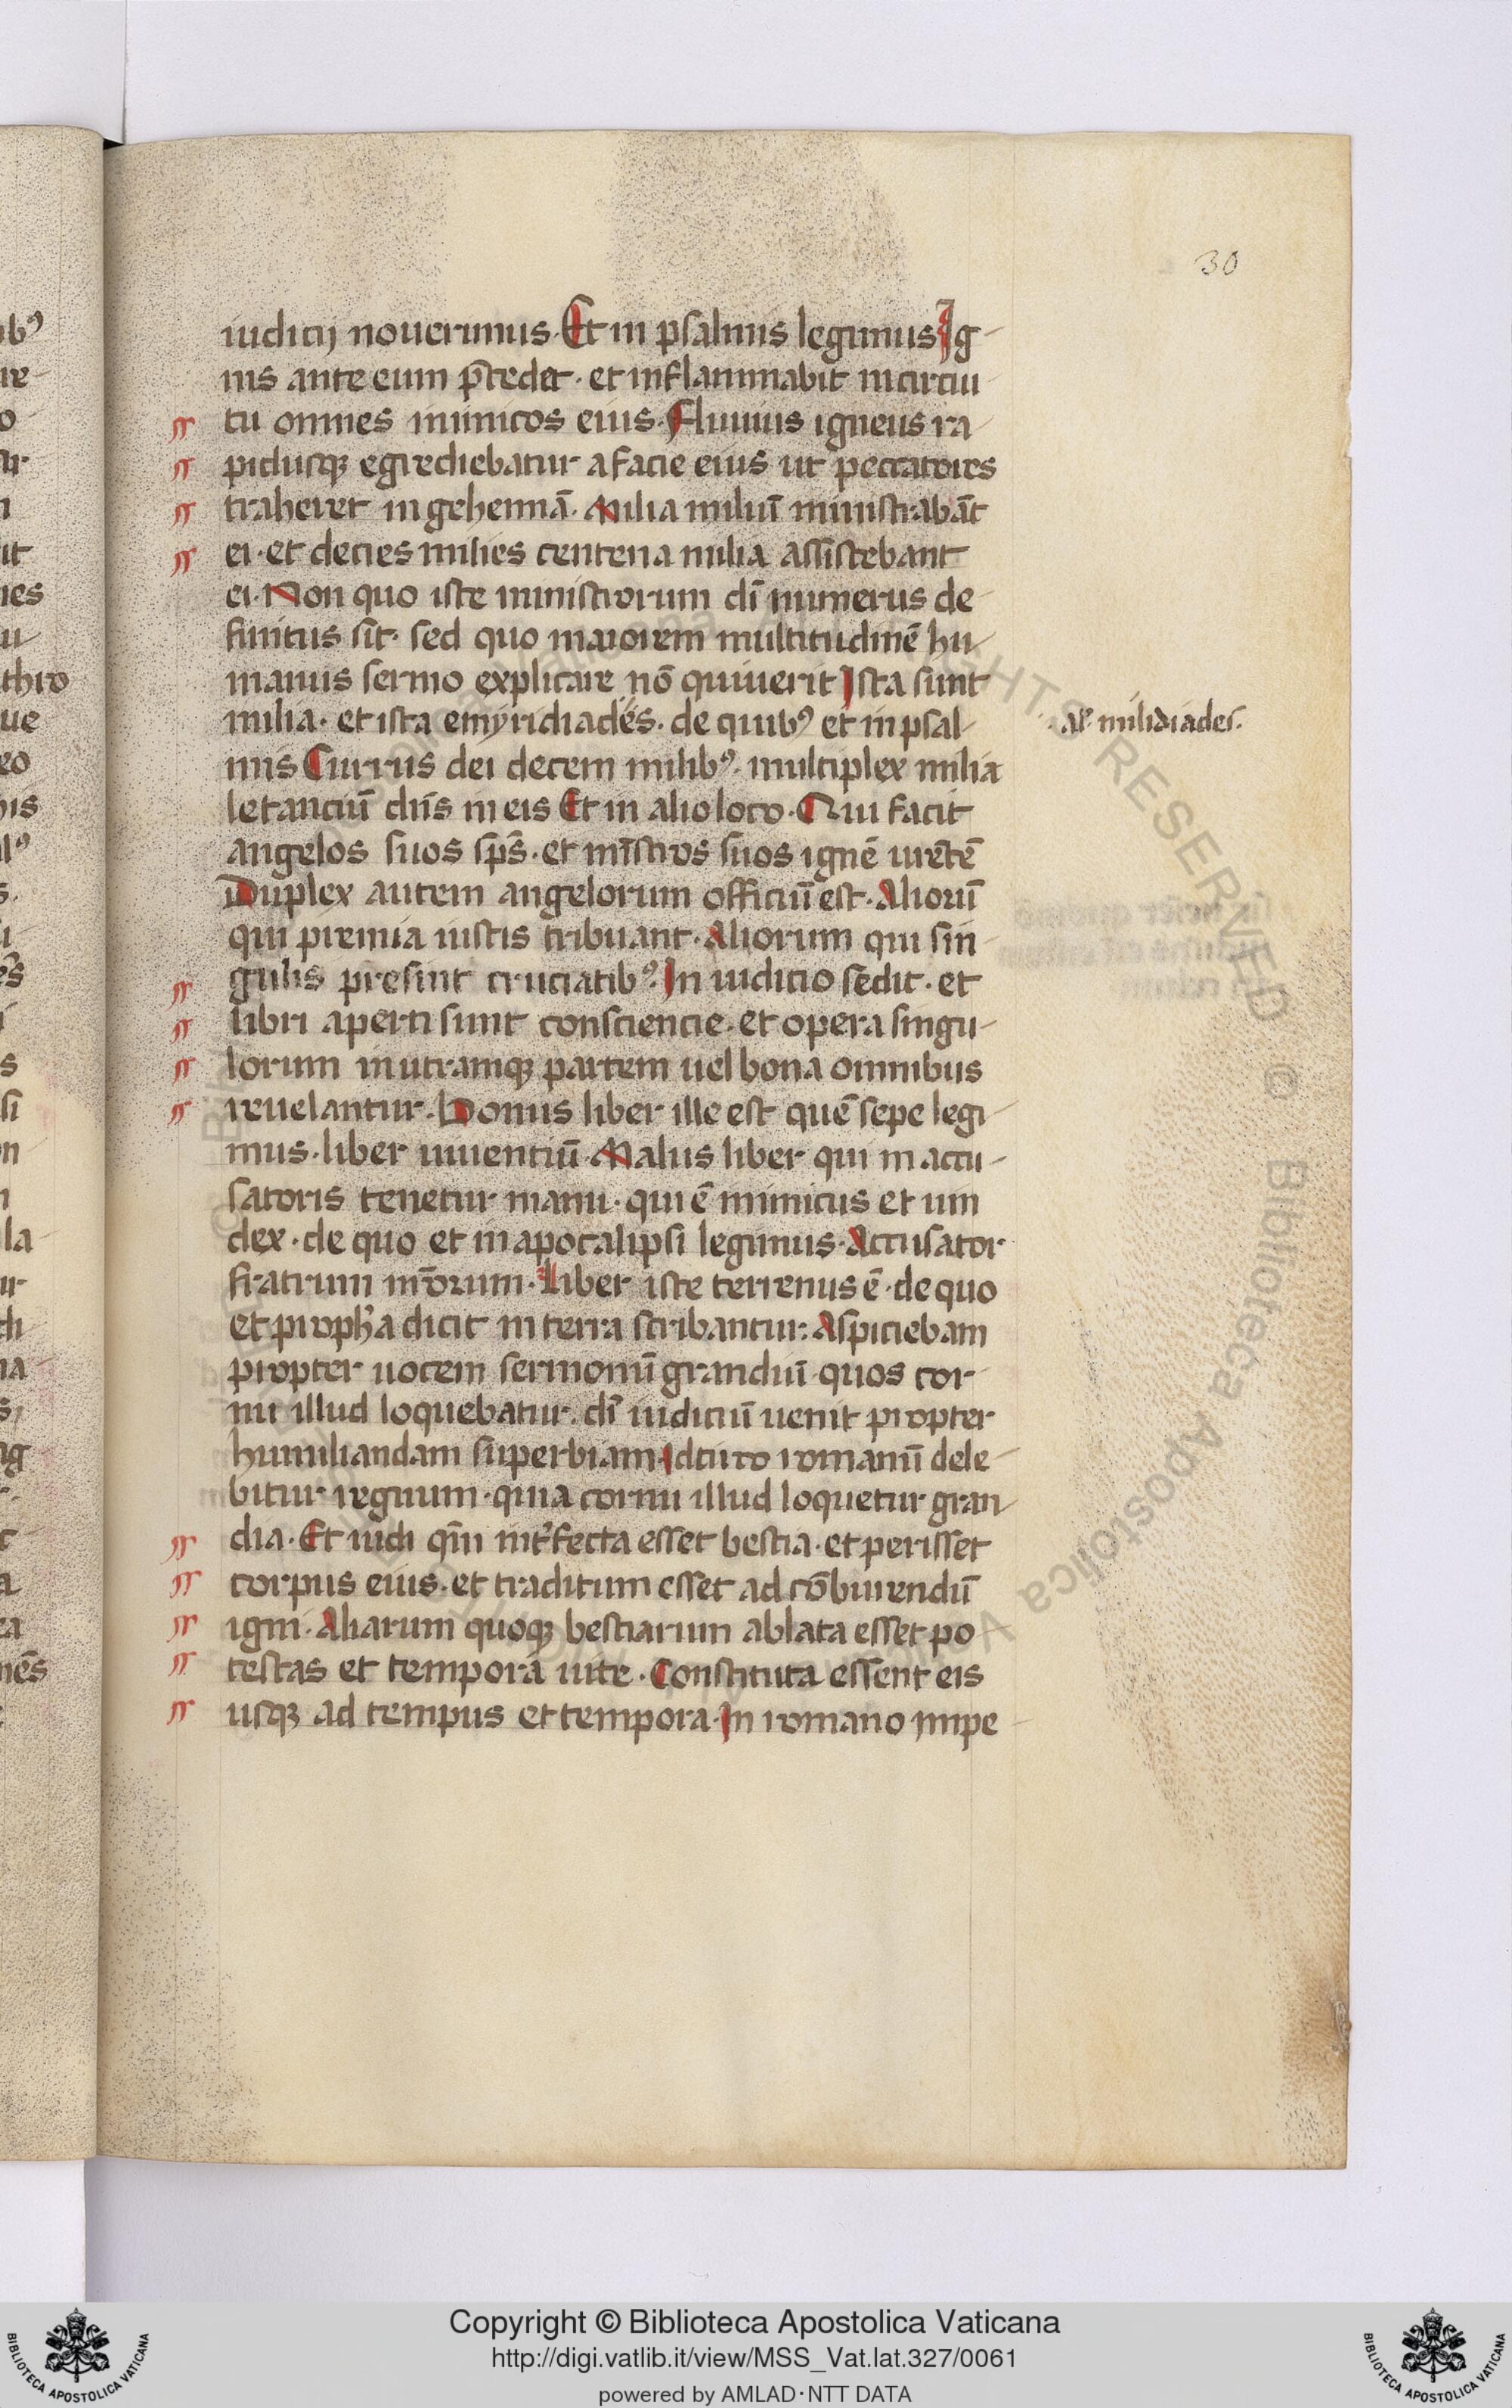 30
iudicij nouerimus. Et in psalmis legimus Ig-
nis ante eum p̄cedet. et inflammabit in circui
tu omnes inimicos eius. Fluuius igneus ra
pidusqꝫ egrediebatur a facie eius ut peccatores
traheret in gehennā. Milia miliuī ministrabāt
ei. et decies milies centena milia assistebant
ei. Non quo iste ministrorum dī numerus de
finitus sit. sed quo maiorem multitudinē hu
manus sermo explicare nō quiuerit Ista sunt
milia. et ista emyridiades. de quibꝰ et in psal-
mis Currus dei decem milibꝰ. multiplex milia
letanciū dn̄s in eis Et in alio loco. Qui facit
angelos suos sp̄s. et mīstros suos ignē urētē
Duplex autem angelorum officiū est. Aliorū
qui premia iustis tribuant. Aliorum qui sin
gulis presint cruciatibꝰ. In iudicio sedit. et
libri aperti sunt consciencie. et opera singu-
lorum in utramqꝫ partem uel bona omnibus
reuelantur. Bonus liber ille est quē sepe legi
mus. liber uiuentiū. Malus liber qui in accu-
satoris tenetur manu. qui ē inimicus et uin
dex. de quo et in apocalipsi legimus. Accusator
fratrum nr̄orum. Liber iste terrenus ē. de quo
et proph̄a dicit in terra scribantur: Aspiciebam
propter uocem sermonū granduī quos cor-
nu illud loquebatur. dī iudiciū uenit propter
humiliandam superbiam. Idcirco romanū dele-
bitur regnum. quia cornu illud loquetur gran
dia. Et uidi qm̄ int̄fecta esset bestia. et perisset
corpus eius. et traditum esset ad cōburendū
igni. Aliarum quoqꝫ bestiarum ablata esset po
testas et tempora uite. Constituta essent eis
usqꝫ ad tempus et tempora. In romano impe-
.Al' milidiades.
Copyright © Biblioteca Apostolica Vaticana
http://digi.vatlib.it/view/MSS_Vat.lat.327/0061
powered by AMLAD·NTT DATA